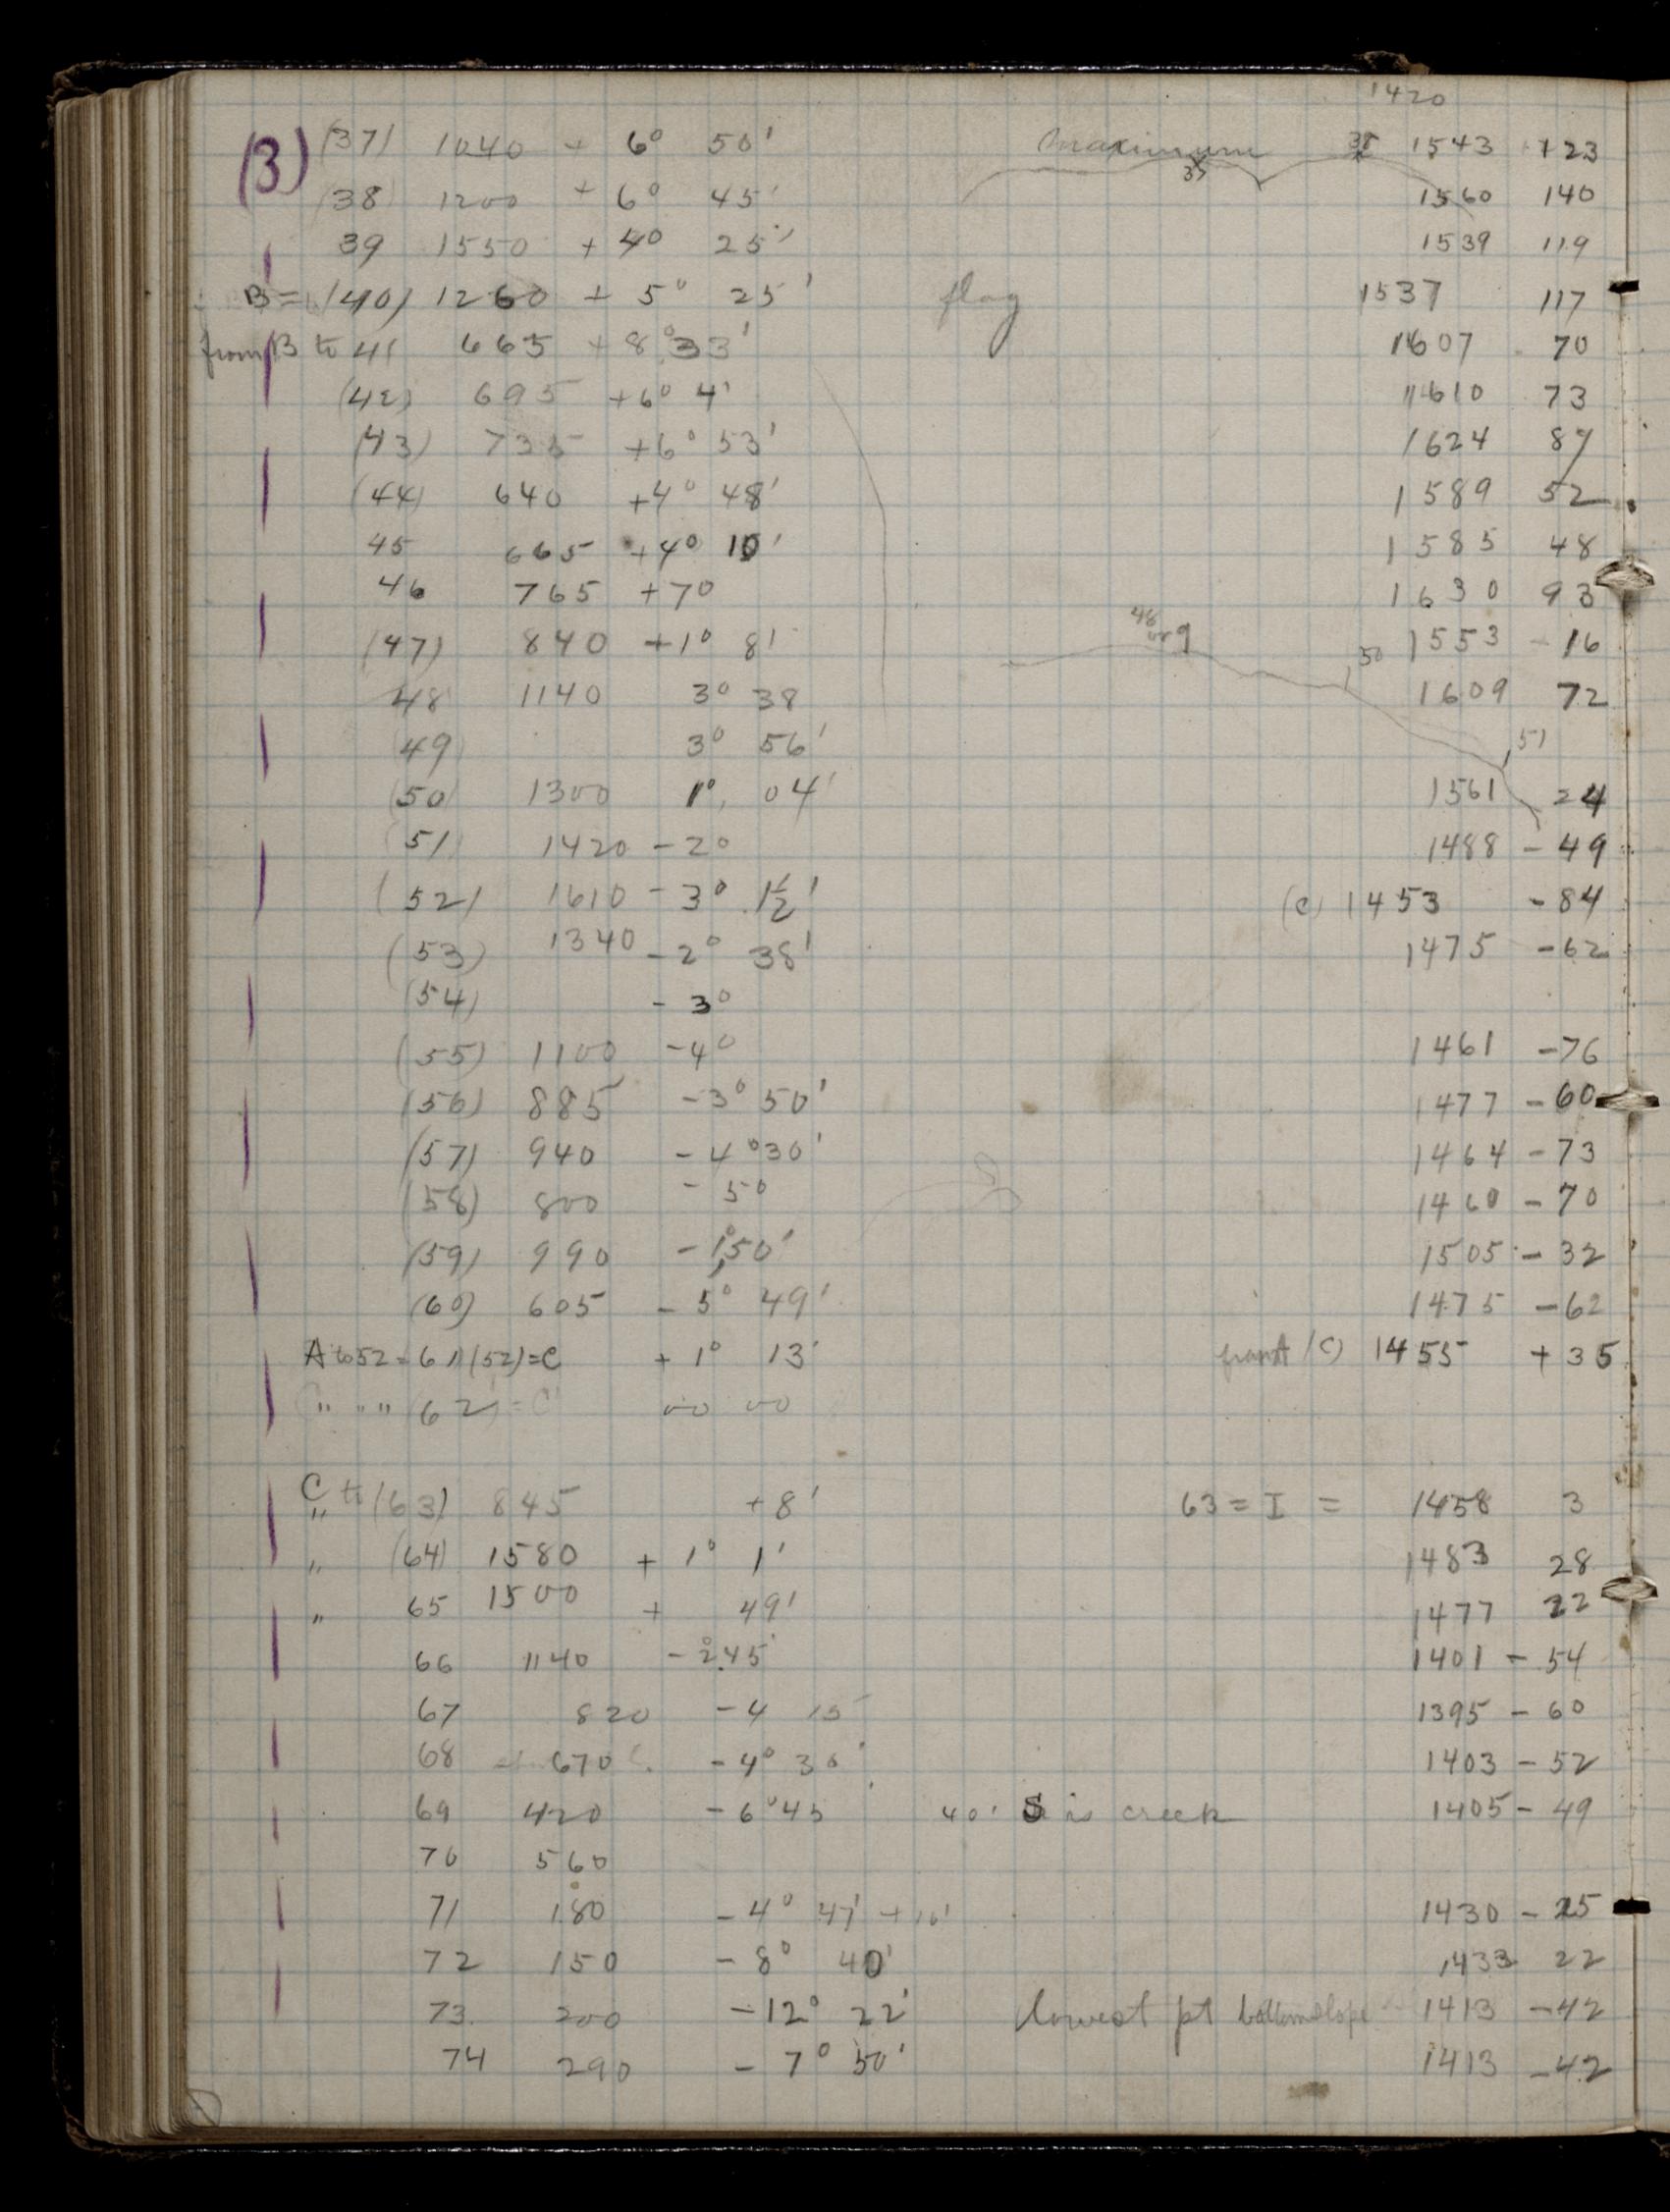 1420
(3) (37) 1040 + 6° 50' maximum 38 1543 +123
35
(38) 1200 + 6° 45' 1560 140
39 1550 + 4° 25' 1539 119
B = (40) 1260 + 5° 25' flag 1537 117
from B to 41 665 + 8° 33' 1607 70
(42) 695 + 6° 4' 1610 73
(43) 735 + 6° 53' 1624 87
(44) 640 + 4° 48' 1589 52
45 665 + 4° 10' 1585 48
46 765 + 7° 1630 93
48 or 9
(47) 840 + 1° 8' 50 1553 - 16
48 1140 3° 38 1609 72
(49) 3° 56' 51
(50) 1300 1° 04' 1561 24
(51) 1420 - 2° 1488 - 49
(52) 1610 - 3° 1½' (C) 1453 - 84
(53) 1340 - 2° 38' 1475 - 62
(54) - 3°
(55) 1100 - 4° 1461 - 76
(56) 885 - 3° 50' 1477 - 60
(57) 940 - 4° 30' 1464 - 73
(58) 800 - 5° 1460 - 70
(59) 990 - 1° 50' 1505 - 32
(60) 605 - 5° 49' 1475 - 62
A to 52 = 61 (52) = C + 1° 13' from A (C) 1455 + 35
" " " (62) = C 00 00
C to (63) 845 + 8' 63 = I = 1458 3
" (64) 1580 + 1° 1' 1483 28
" 65 1500 + 49' 1477 22
66 1140 - 2° 45' 1401 - 54
67 820 - 4 15 1395 - 60
68 670 - 4° 30' 1403 - 52
69 420 - 6° 45 40' S is creek 1405 - 49
70 560
71 180 - 4° 47' + 10' 1430 - 25
72 150 - 8° 40' 1433 22
73. 200 - 12° 22' lowest pt bottom slope 1413 - 42
74 290 - 7° 50' 1413 - 42